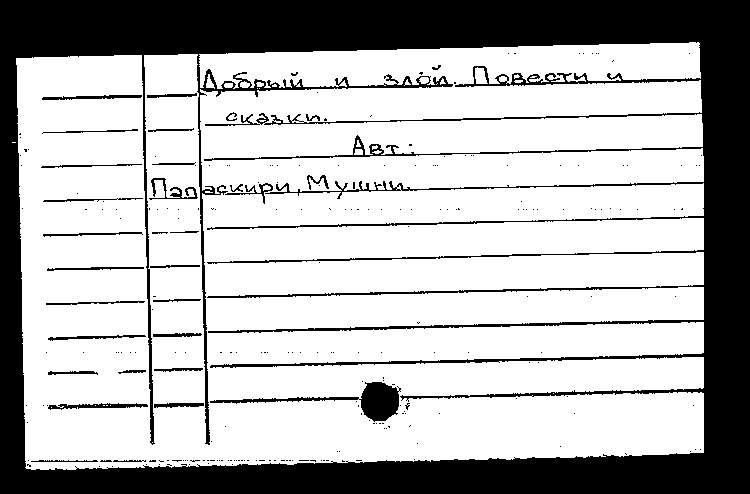 Добрый и злой. Повести и
сказки.
Авт.:
Папаскири, Мушни.